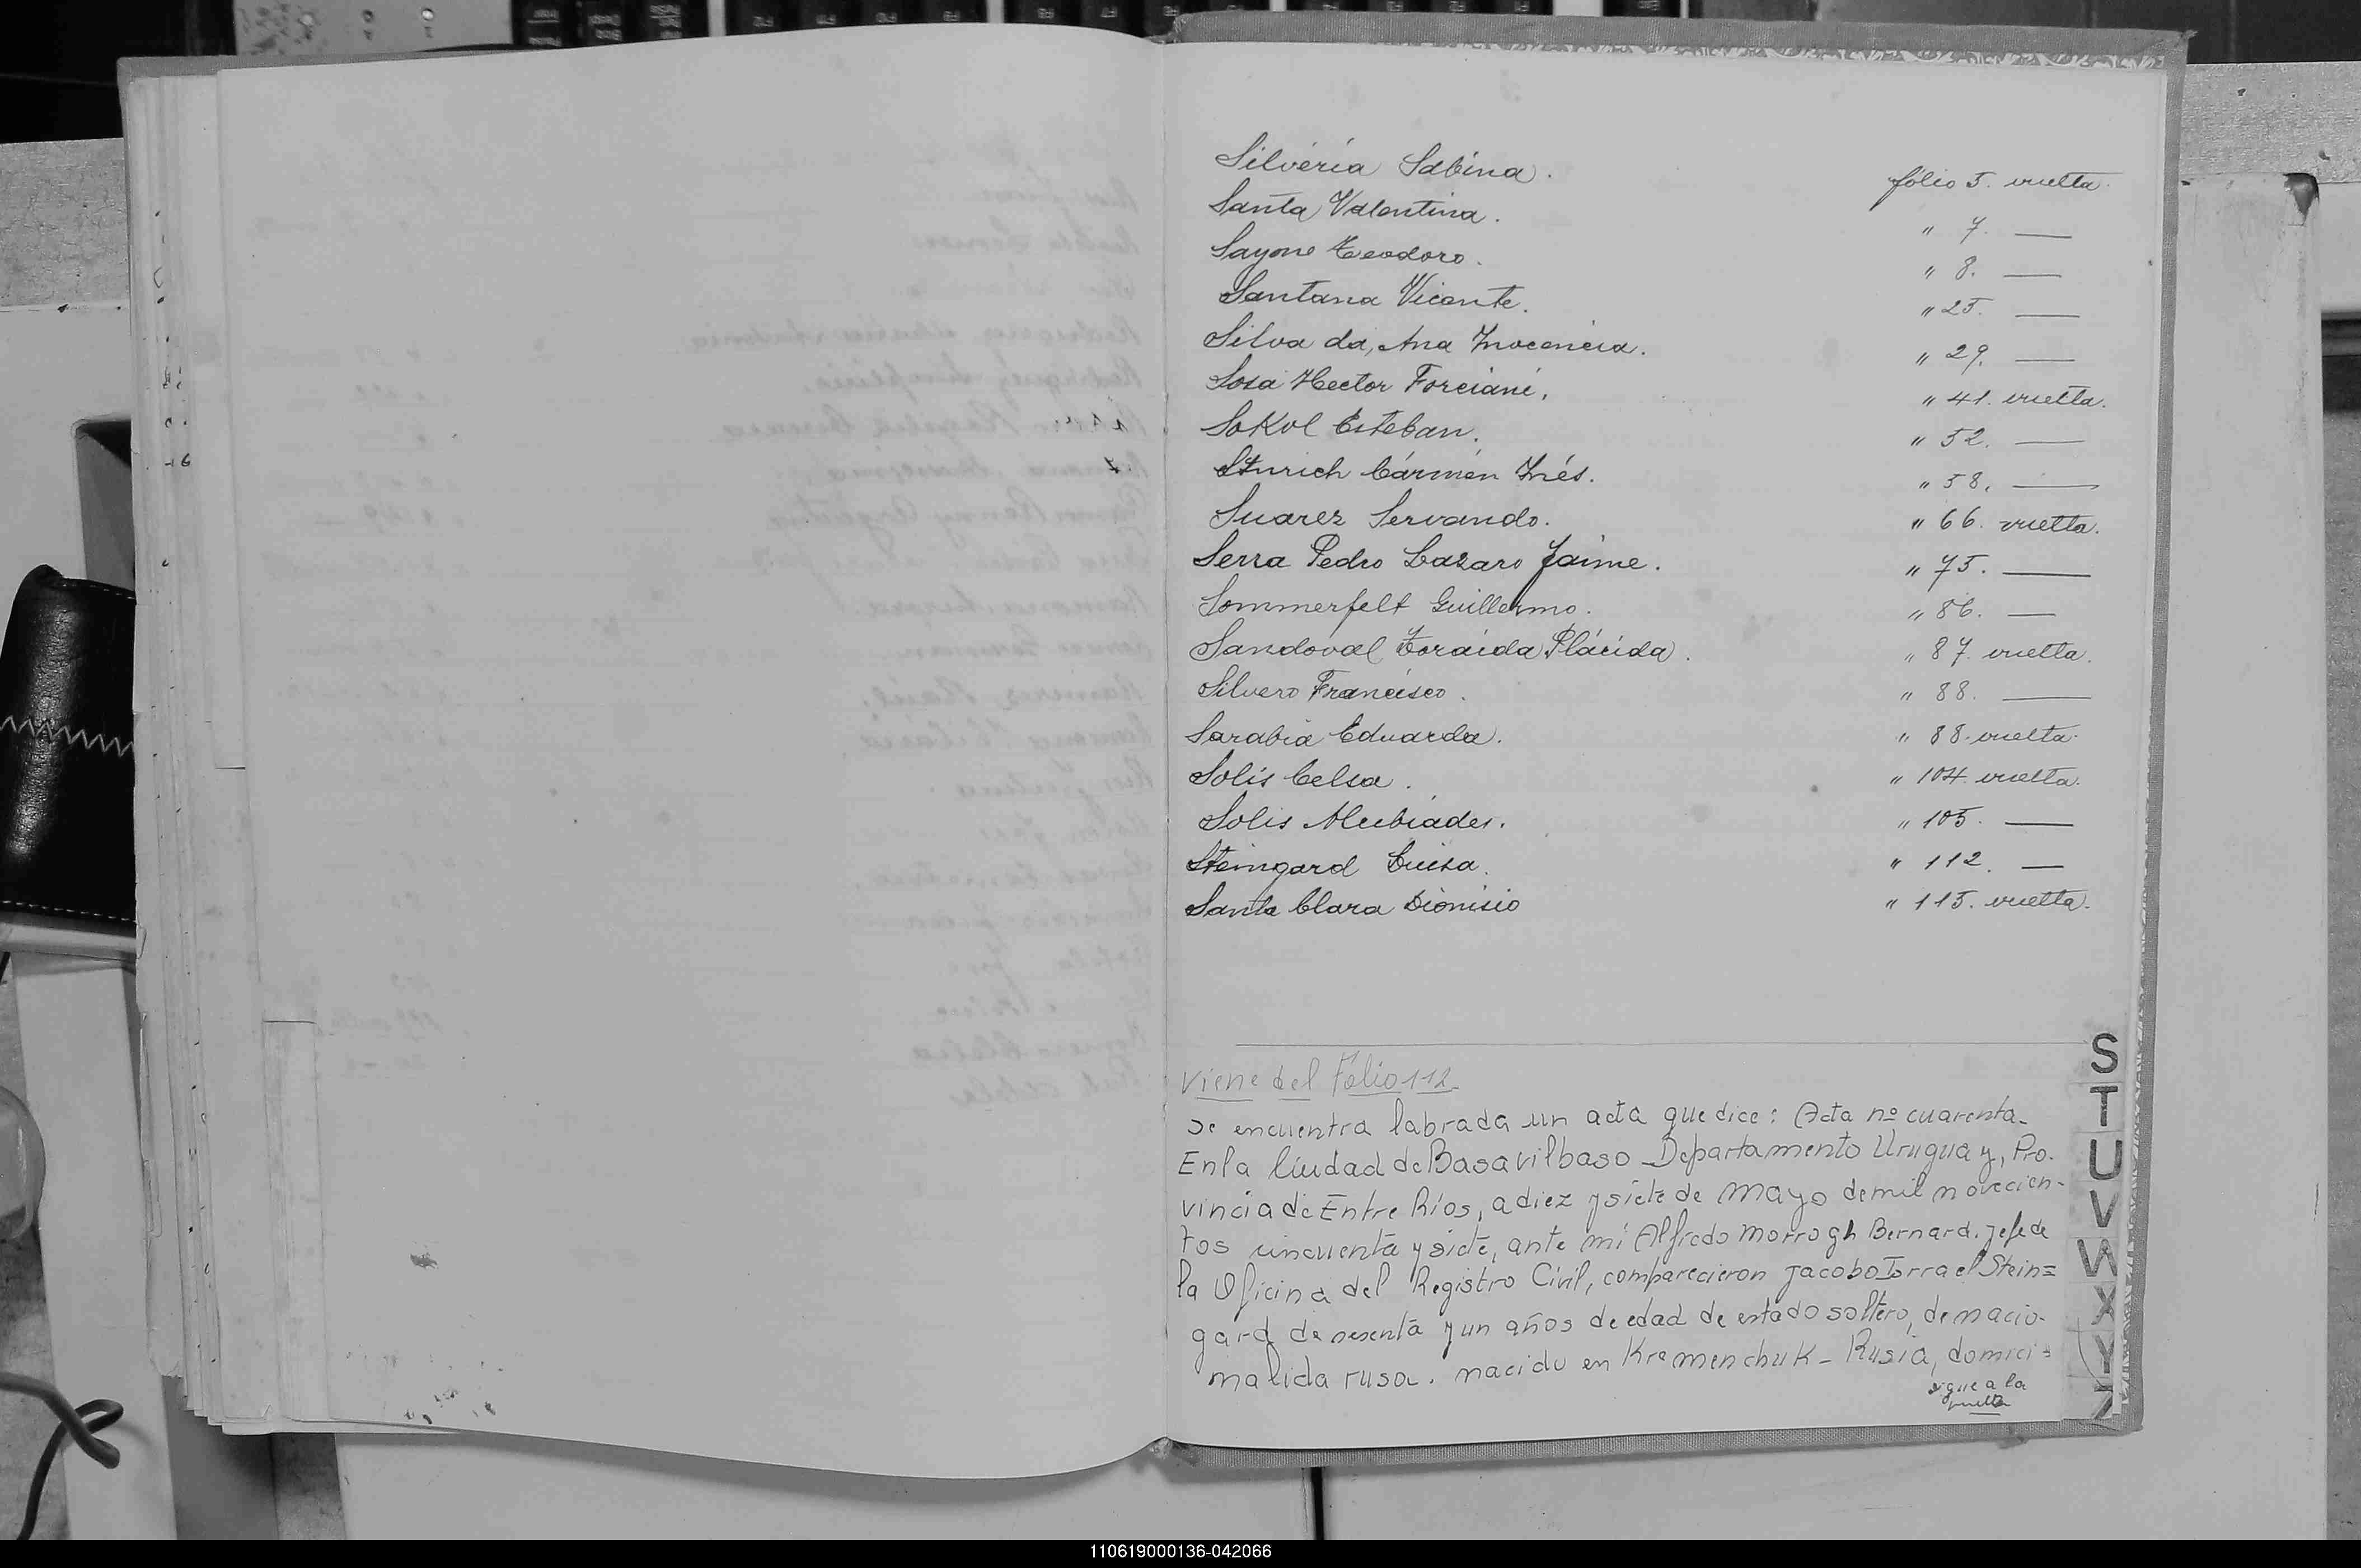 Silvéria Sabina. folio 5. vuelta.
Santa Valentina. " 7. —
Sayone Teodoro. " 8. —
Santana Vicente. " 25. —
Silva da, Ana Inocencia. " 29. —
Sosa Hector Forciani. " 41. vuelta.
Sokol Esteban. " 52. —
Sturich Cármen Inés. " 58. —
Suarez Servando. " 66. vuelta.
Serra Pedro Lazaro Jaime. " 75. —
Sommerfelt Guillermo. " 86. —
Sandoval Zoraida Plácida. " 87. vuelta.
Silvero Francisco. " 88. —
Sarabia Eduarda. " 88. vuelta.
Solis Celsa. " 104. vuelta.
Solis Alcibiades. " 105. —
Steingard Luisa. " 112. —
Santa Clara Dionisio " 115. vuelta.
Viene del Fólio 112-
se encuentra labrada un acta que dice: Acta nº cuarenta-
En la Ciudad de Basavilbaso - Departamento Uruguay, Pro-
vincia de Entre Ríos, a diez y siete de mayo de mil novecien-
tos cincuenta y siete, ante mi Alfredo Morrogh Bernard. Jefe de
la Oficina del Registro Civil, comparecieron Jacobo Isrrael Stein=
gard de sesenta y un años de edad de estado soltero, de nacio-
nalida rusa. nacido en Kremenchuk - Rusia, domici=
sigue a la
vuelta
S
T
U
V
W
X
Y
Z
110619000136-042066